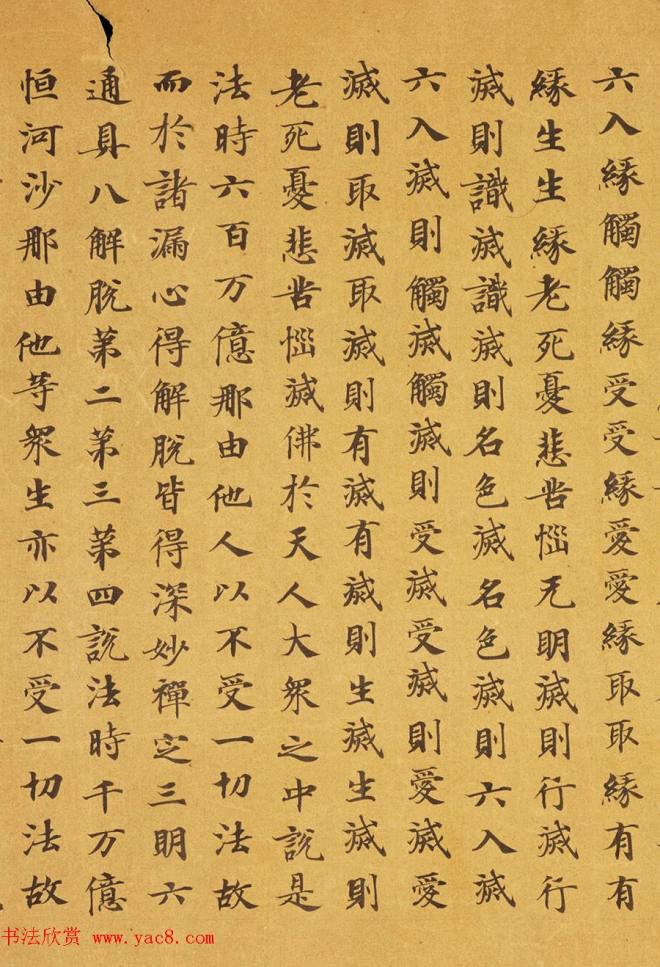 六入緣觸觸緣受受緣愛愛緣取取緣有有
緣生生緣老死憂悲苦惱无明滅則行滅行
滅則識滅識滅則名色滅名色滅則六入滅
六入滅則觸滅觸滅則受滅受滅則愛滅愛
滅則取滅取滅則有滅有滅則生滅生滅則
老死憂悲苦惱滅佛於天人大衆之中說是
法時六百万億那由他人以不受一切法故
而於諸漏心得解脫皆得深妙禪定三明六
通具八解脫第二第三第四說法時千万億
恒河沙那由他等衆生亦以不受一切法故
书法欣赏 www.yac8.com